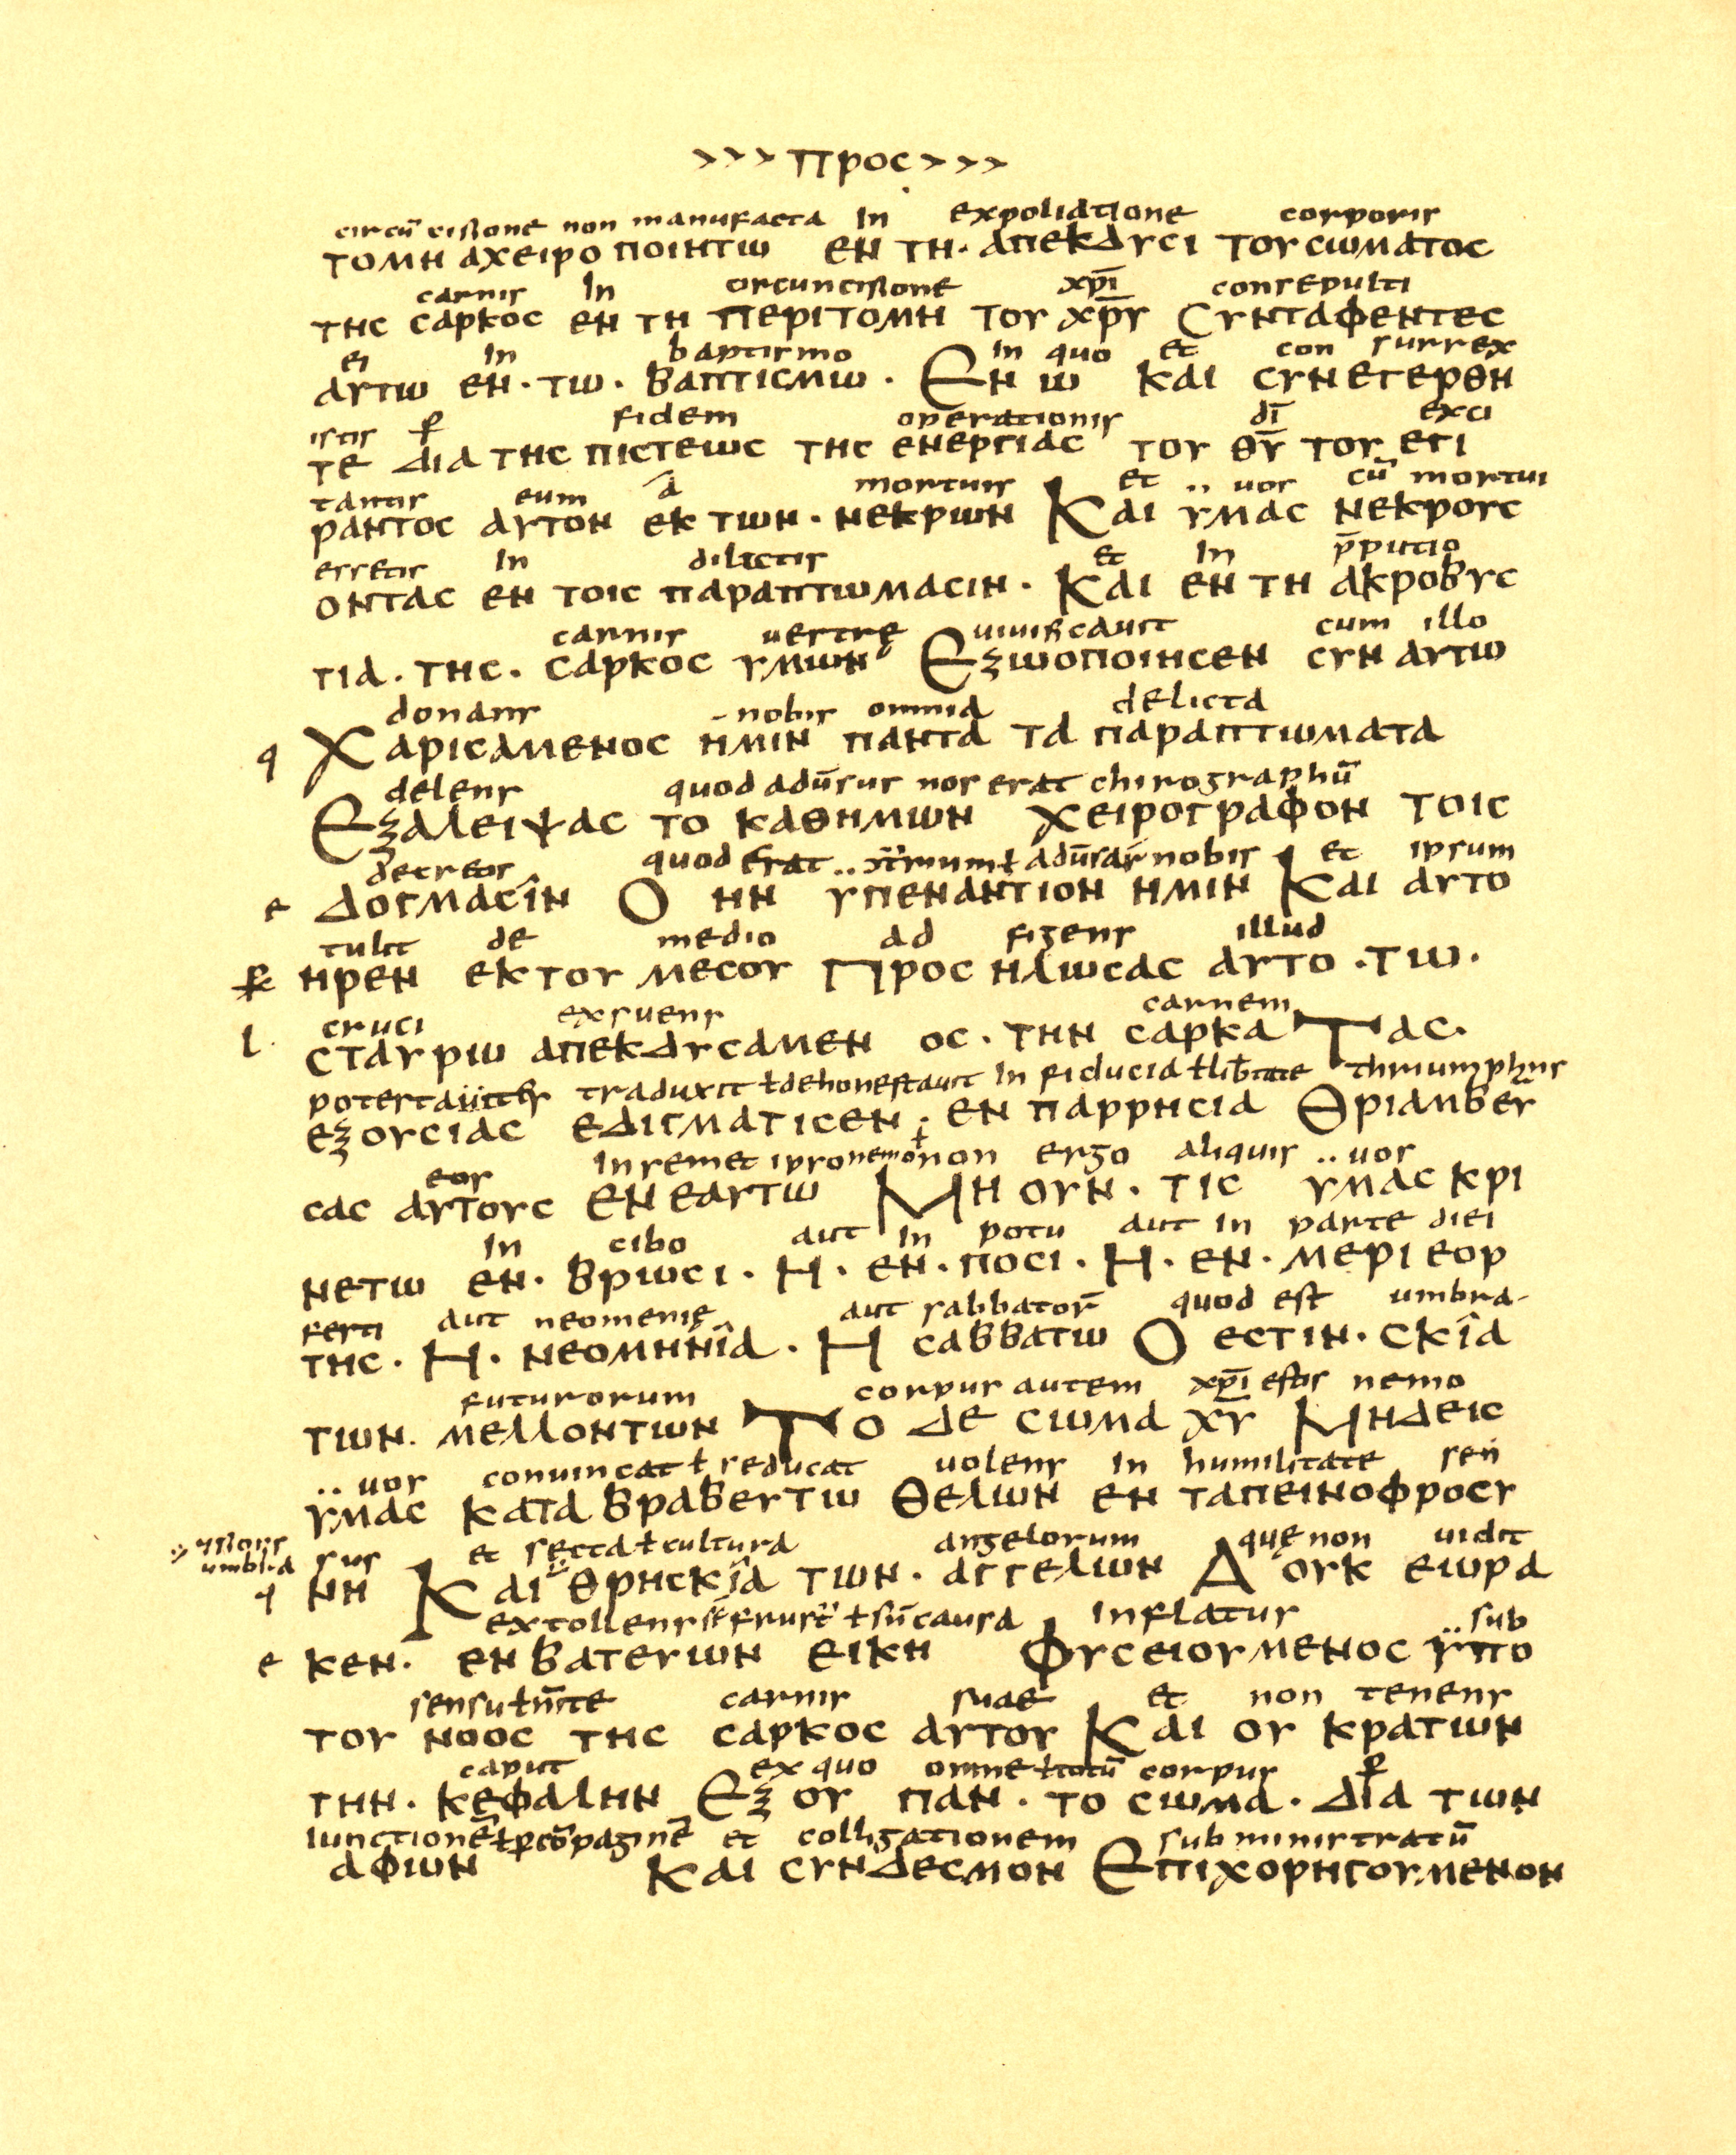 >>> προс >>>
circū cisione non manufacta in expoliatione corporis
τομη αχειροποιητω εν τη· απεκδυσι του σωματος
carnis in circuncisione xp̄i consepulti
της σαρκος εν τη περιτομη του χρ̄υ Συνταφεντες
ei in baptismo in quo et con surrex
αυτω εν· τω· βαπτισμω· Εν ω και συνεγερθη
istis p̄ fidem operationis dī exci
τε δια της πιστεως της ενεργιας του θ̄υ του εγι
tantis eum a mortuis et ·· uos cū mortui
ραντος αυτον εκ των· νεκρων Και υμας νεκρους
essetis in dilictis et in p̄putio
οντας εν τοις παραπτωμασιν· Και εν τη ακροβυς
carnis uestrę uiuificauit cum illo
τια· της· σαρκος υμων Εζωοποιησεν συν αυτω
donans nobis omnia delicta
q Χαρισαμενος ημιν παντα τα παραπτωματα
delens quod adūsus nos erat chirographū
Εξαλειψας το καθημων χειρογραφον τοις
decretis quod erat nobis et ipsum
ε δογμασιν Ο ην υπεναντιον ημιν Και αυτο
tulit de medio ad figens illud
ηρεν εκ του μεσου Προς ηλωσας αυτο· τω·
cruci exsuens carnem
l· σταυρω απεκδυσαμεν ος· την σαρκα Τας·
traduxit ł dehonestauit in fiducia ł lib̄tate thriumphans
εξουσιας εδιγματισεν· εν παρρησια Θριαμβευ
eos in semet ipso non ergo aliquis ·· uos
σας αυτους εν εαυτω Μη ουν· τις υμας κρι
in cibo aut in potu aut in parte diei
νετω εν· βρωσι· Η· εν· ποσι· Η· εν· μερι εορ
festi aut neomenię aut sabbatoꝝ quod est umbra
της· Η· νεομηνια· Η σαββατω Ο εστιν· σκια
futurorum corpus autem xp̄i nemo
των· μελλοντων Το δε σωμα χ̄υ Μηδεις
·· uos conuincat ł seducat uolens in humilitate sen
υμας κατα βραβευτω θελων εν ταπεινοφροσυ
sus et secta ł cultura angelorum quę non uidit
q νη Και θρησκια των· αγγελων Α ουκ εωρα
extollens ł sine causa inflatur ·· sub
ε κεν· ενβατευων εικη φυσειουμενος υπο
sensu ł m̄te carnis suae et non tenens
του νοος της σαρκος αυτου Και ου κρατων
caput ex quo omne ł totū corpus p̄
την· κεφαλην Εξ ου παν· το σωμα· δια των
iunctionē ł p̄ cōpaginē et colligationem subministratū
αφων και συνδεσμον Επιχορηγουμενον